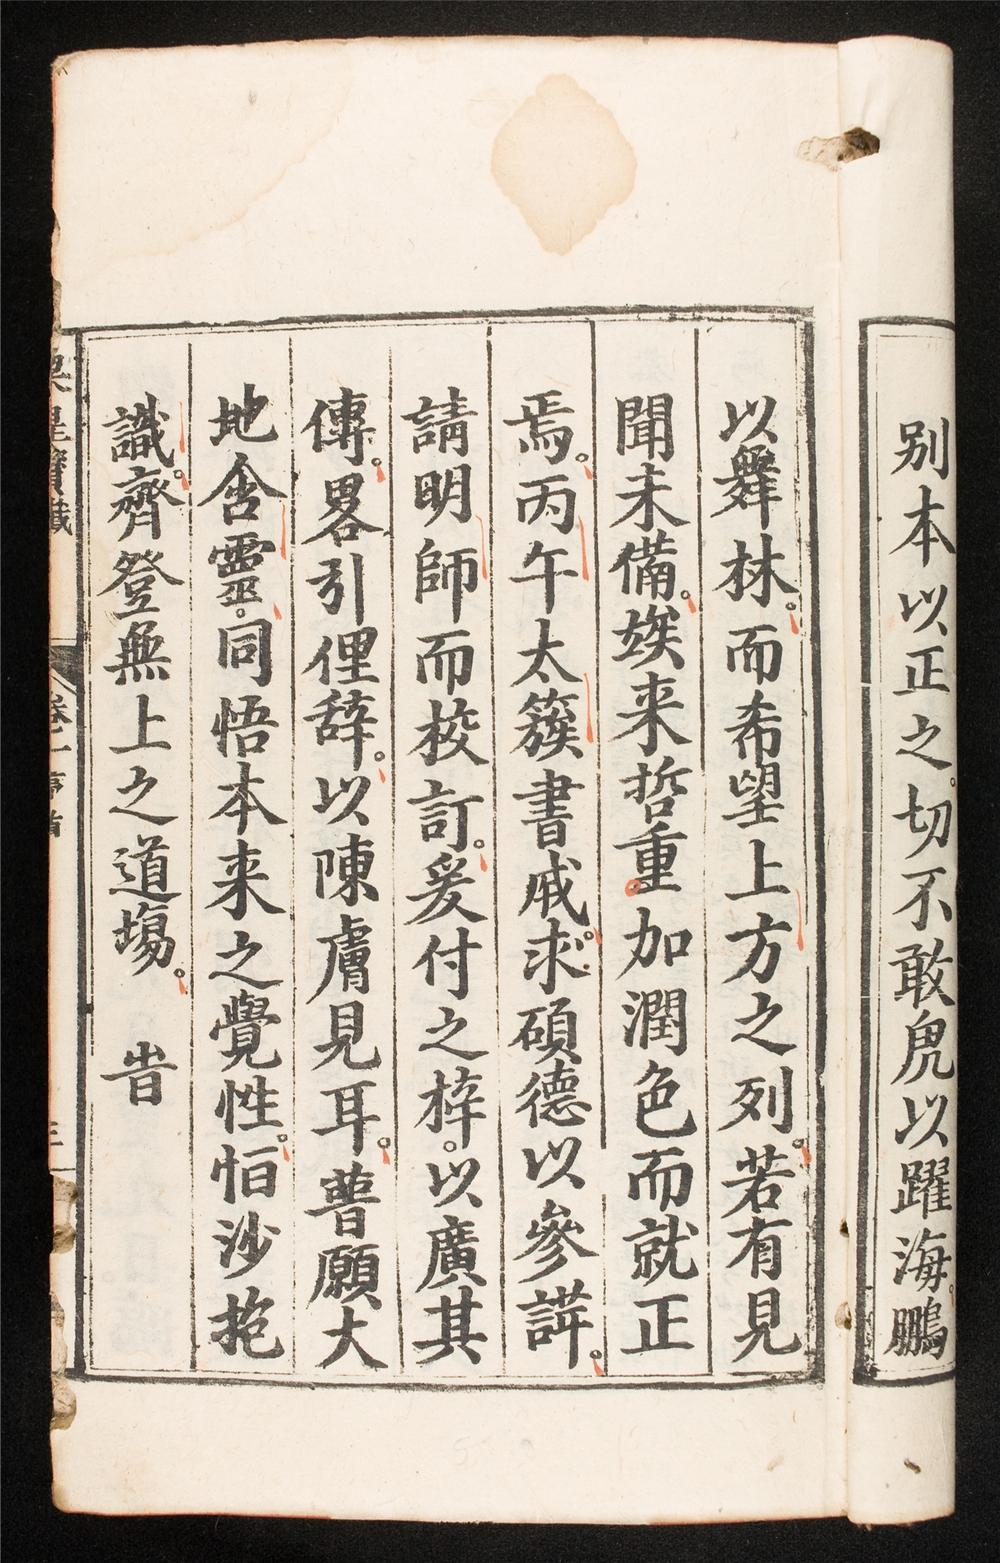 别本以正之。切不敢鳬以躍海。鵬
以舞林。而希望上方之列。若有見
聞未備。竢来哲重加潤色而就正
焉。丙午太簇書成。求碩德以參詳。
請明師而校訂。爰付之梓。以廣其
傳。畧引俚辞。以陳膚見耳。普願大
地含靈。同悟本来之覺性。恒沙抱
識。齊登無上之道場。 旹